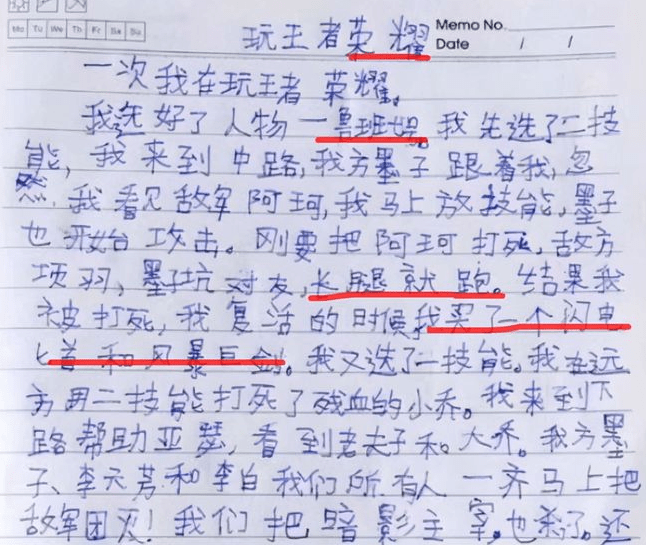 Mo Tu We Th Fr Sa Su
Memo No.
Date / /
玩王者荣耀
一次我在玩王者荣耀。
我选好了人物一鲁班,我先选了二技
能,我来到中路,我方墨子跟着我,忽
然,我看见敌军阿珂,我马上放技能,墨子
也开始攻击。刚要把阿珂打死,敌方
项羽,墨子坑对友,长腿就跑。结果我
被打死,我复活的时候我买了一个闪电
匕首和风暴巨剑。我又选了二技能。我在远
方用二技能打死了残血的小乔。我来到下
路帮助亚瑟,看到老夫子和大乔。我方墨
子、李元芳和李白我们所有人一齐马上把
敌军团灭!我们把暗影主宰,也杀了。还